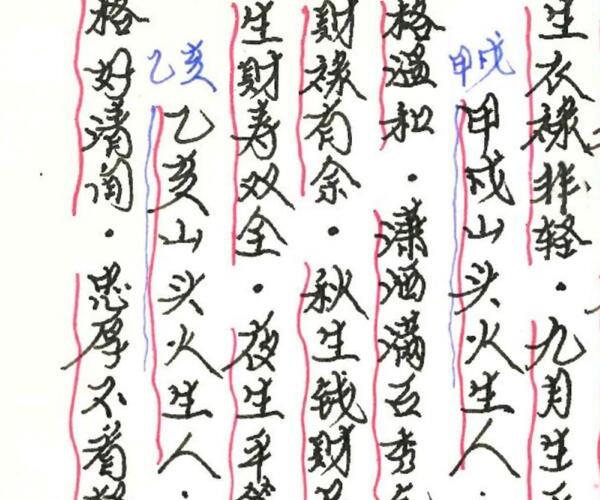 生衣禄非轻·九月生
甲戌
甲戌山头火生人
格温和·潇洒满面秀
财禄有余·秋生钱财
生财寿双全·夜生平
乙亥
乙亥山头火生人·
格好清闲·忠厚不看